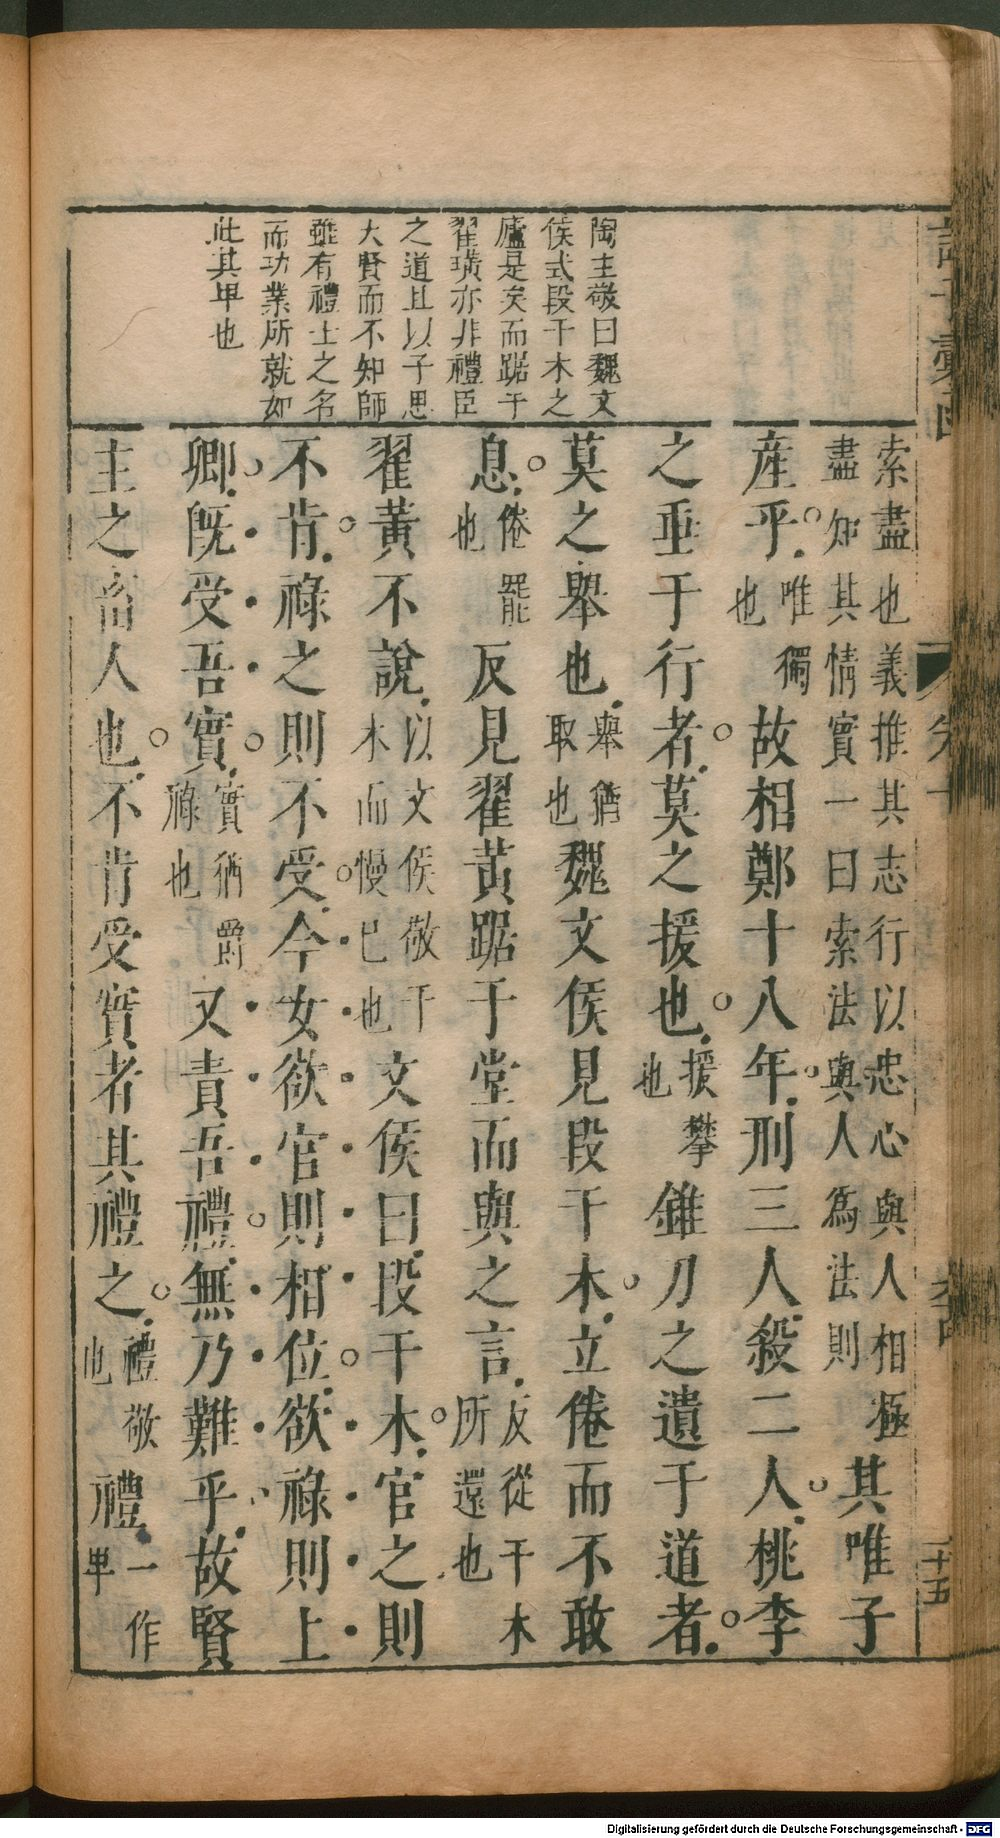 陶主敬曰魏文
侯式段干木之
廬是矣而踞于
翟璜亦非禮臣
之道且以子思
大賢而不知師
雖有禮士之名
而功業所就如
此其卑也
索盡也義推其志行以忠心與人相極
盡知其情實一曰索法與人爲法則其唯子
產乎。唯獨也故相鄭十八年。刑三人。殺二人。桃李
之垂于行者。莫之援也。援攀也錐刀之遺于道者。
莫之舉也。舉猶取也魏文侯見段干木。立倦而不敢
息。倦罷也反見翟黃踞于堂而與之言。反從干木所還也
翟黃不說。以文侯敬干木而慢巳也文侯曰。段干木。官之則
不肯。祿之則不受。今女欲官則相位。欲祿則上
卿。既受吾實。實猶爵祿也又責吾禮。無乃難乎。故賢
主之畜人也。不肯受實者其禮之。禮敬也禮。一作卑
二十五
Digitalisierung gefördert durch die Deutsche Forschungsgemeinschaft - DFG